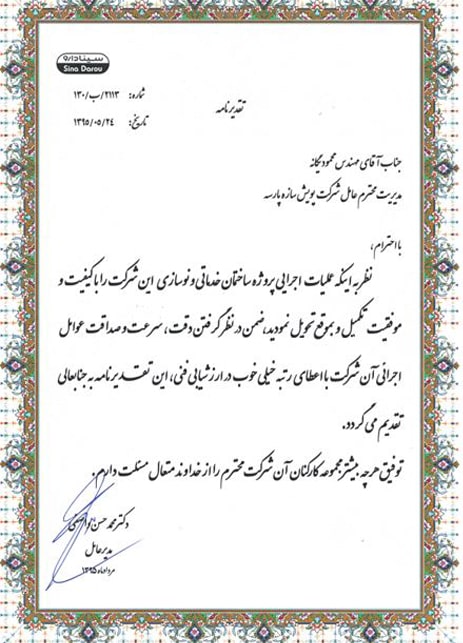 سینادارو
Sina Darou
شماره: ۱۳۰/ب/۲۱۱۳
تاریخ: ۱۳۹۵/۰۵/۲۴
تقدیرنامه
جناب آقای مهندس محمود یگانه
مدیریت محترم عامل شرکت پویش سازه پارسه
با احترام،
نظر به اینکه عملیات اجرایی پروژه ساختمان خدماتی و نوسازی این شرکت را با کیفیت و
موفقیت تکمیل و بموقع تحویل نمودید، ضمن در نظر گرفتن دقت، سرعت و صداقت عوامل
اجرائی آن شرکت با اعطای رتبه خیلی خوب در ارزشیابی فنی، این تقدیرنامه به جنابعالی
تقدیم می گردد.
توفیق هرچه بیشتر مجموعه کارکنان آن شرکت محترم را از خداوند متعال مسئلت دارم.
دکتر محمد حسن
مدیرعامل
مردادماه ۱۳۹۵